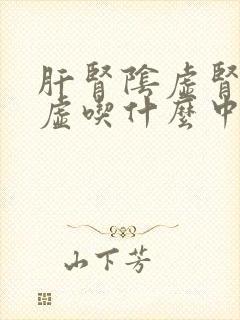 肝腎陰虛腎
虛喫什麼中
山下芳